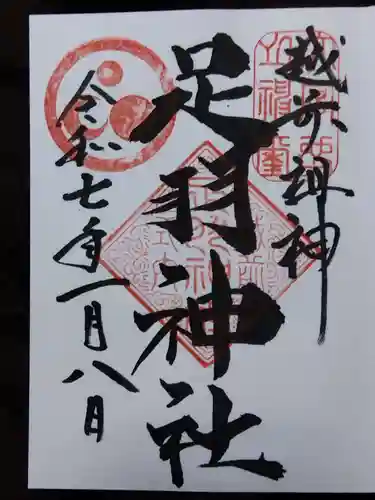 越前祖神
足羽神社
令和七年一月八日